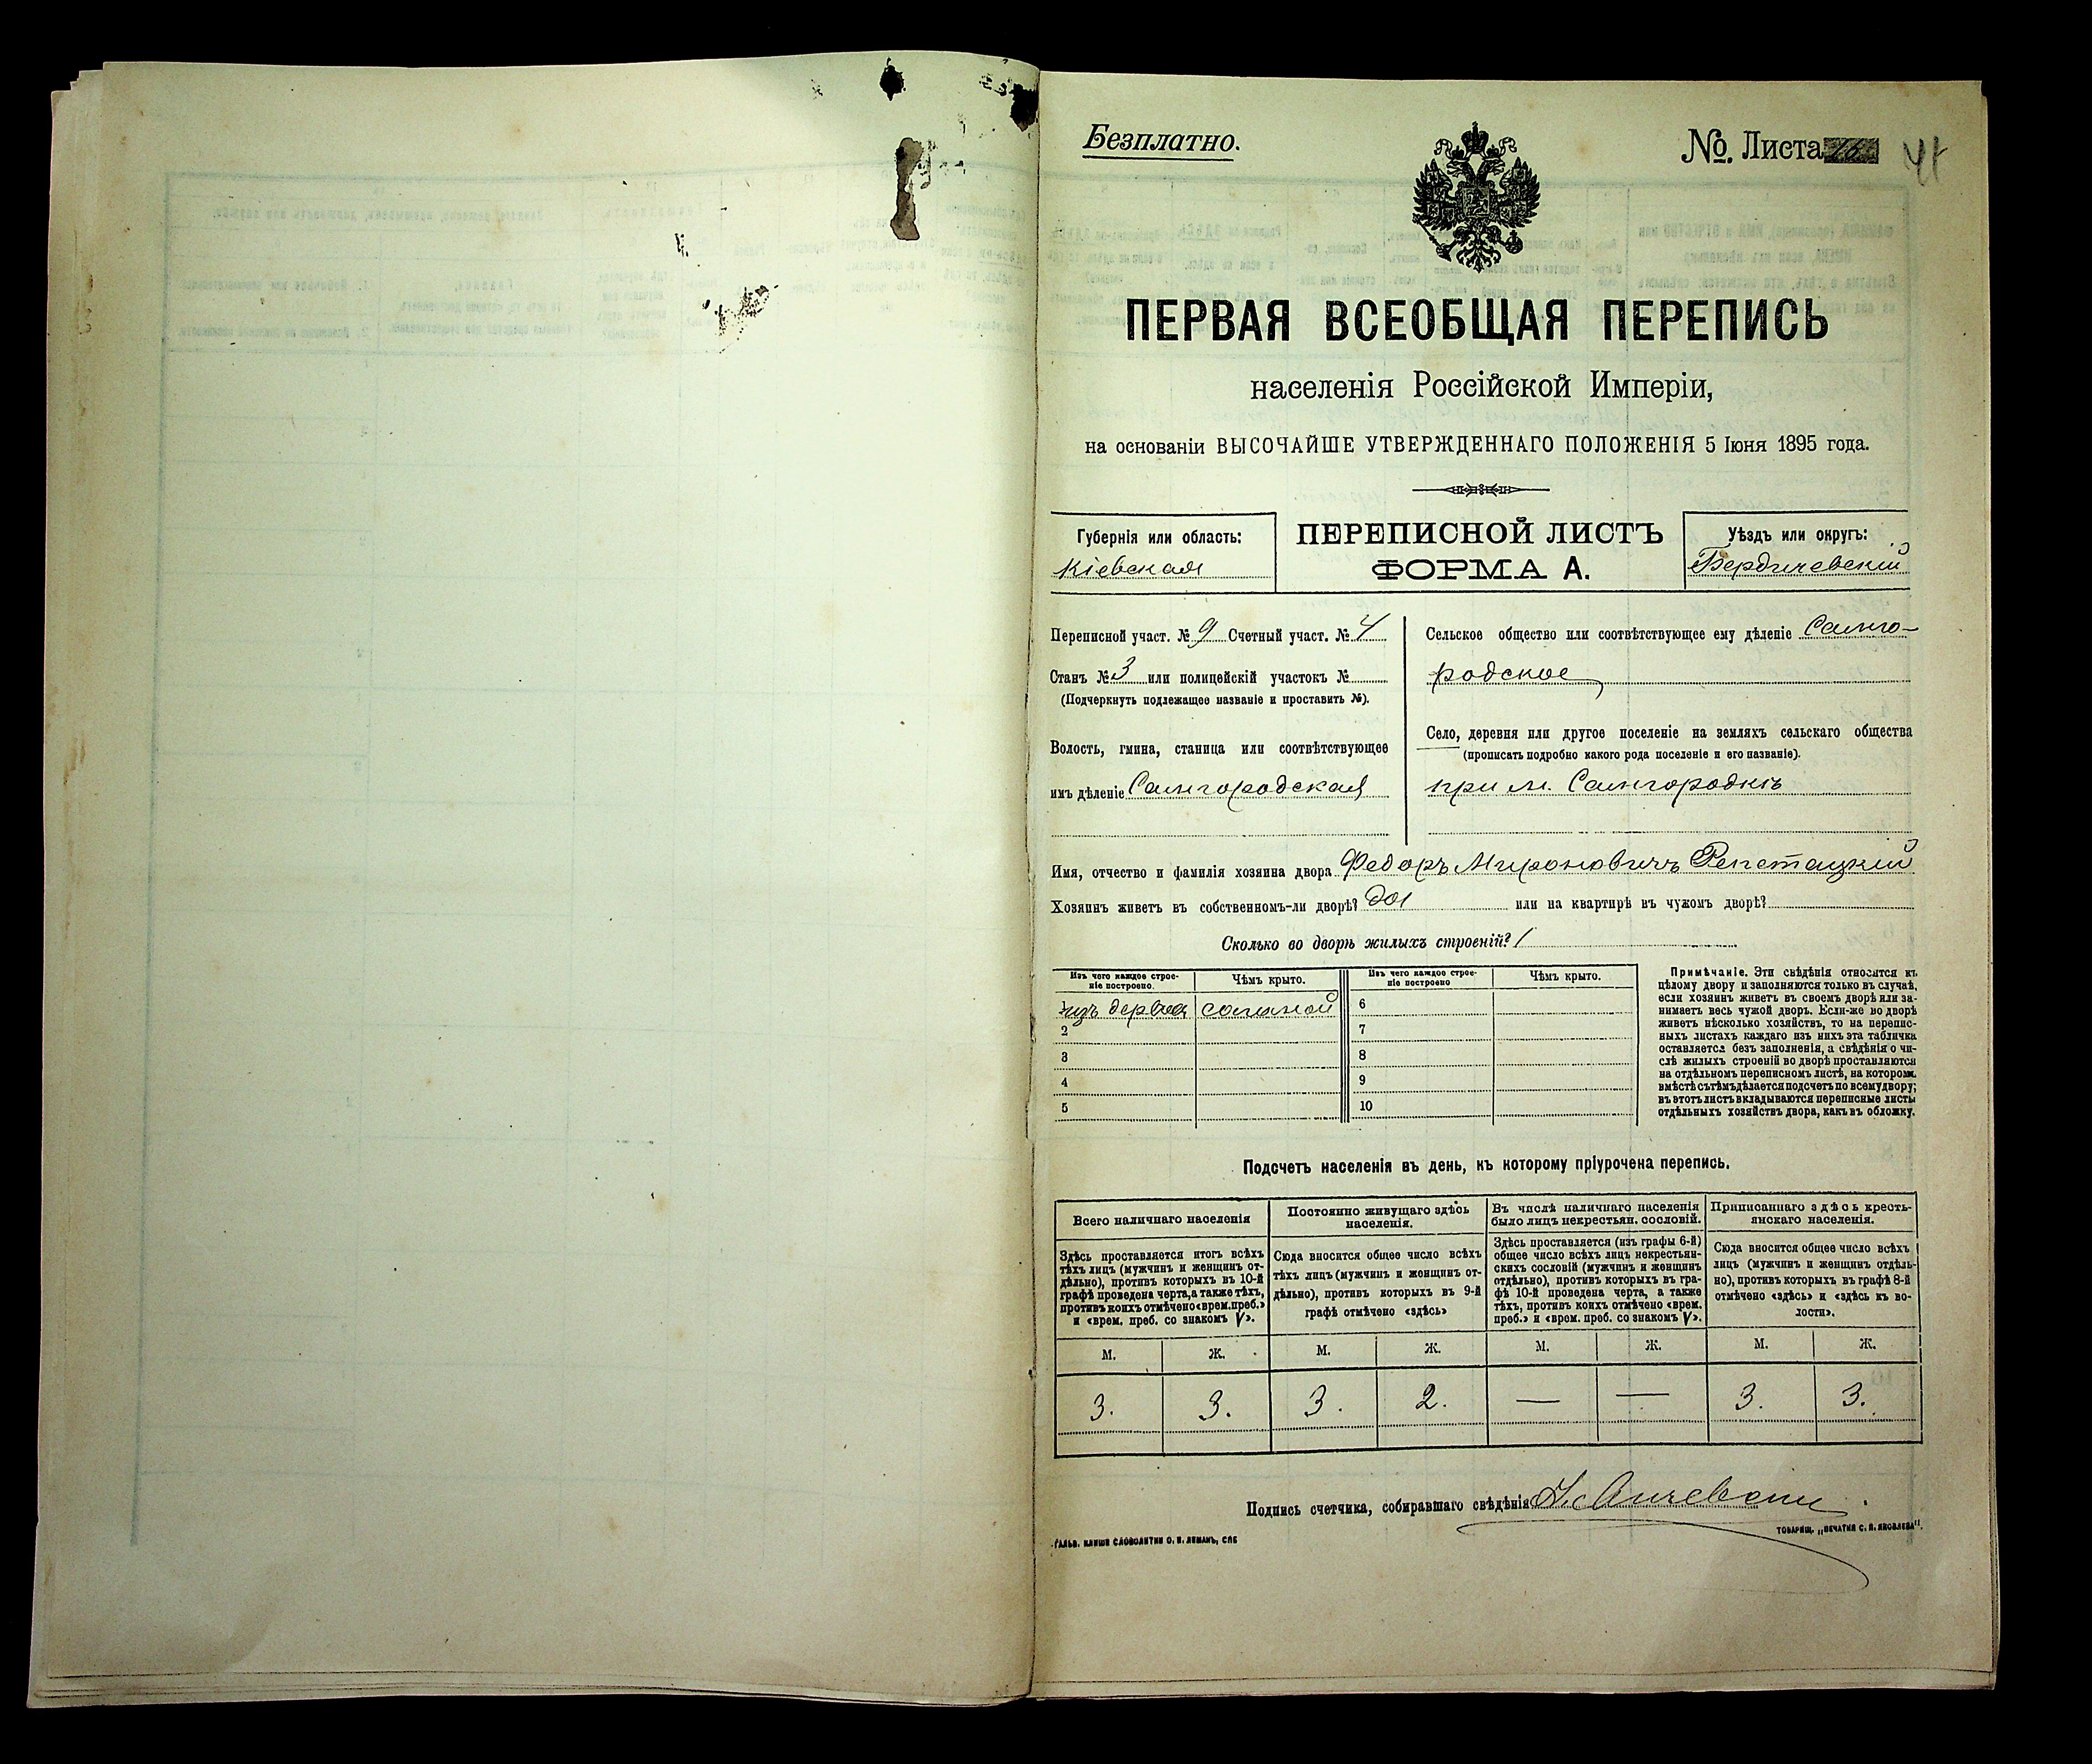 Безплатно.
№. Листа 16
41
ПЕРВАЯ ВСЕОБЩАЯ ПЕРЕПИСЬ
населенія Россійской Имперіи,
на основаніи ВЫСОЧАЙШЕ УТВЕРЖДЕННАГО ПОЛОЖЕНІЯ 5 Іюня 1895 года.
Губернія или область:
Кіевская
ПЕРЕПИСНОЙ ЛИСТЪ
ФОРМА А.
Уѣздъ или округъ:
Бердичевскій
Переписной участ. № 9 Счетный участ. № 4
Станъ № 3 или полицейскій участокъ №
(Подчеркнуть подлежащее названіе и проставить №).
Волость, гмина, станица или соотвѣтствующее
имъ дѣленіе Самгородская
Сельское общество или соотвѣтствующее ему дѣленіе Самго-
родское
Село, деревня или другое поселеніе на земляхъ сельскаго общества
(прописать подробно какого рода поселеніе и его названіе).
при м. Самгородкѣ
Имя, отчество и фамилія хозяина двора Федоръ Мироновичъ Репетацкий
Хозяинъ живетъ въ собственномъ-ли дворѣ? да или на квартирѣ въ чужомъ дворѣ?
Сколько во дворѣ жилыхъ строеній? 1
Изъ чего каждое строе-
ніе построено.
Чѣмъ крыто.
Изъ чего каждое строе-
ніе построено
Чѣмъ крыто.
1 изъ дерева соломой 6
2 7
3 8
4 9
5 10
Примѣчаніе. Эти свѣдѣнія относятся къ
цѣлому двору и заполняются только въ случаѣ,
если хозяинъ живетъ въ своемъ дворѣ или за-
нимаетъ весь чужой дворъ. Если-же во дворѣ
живетъ нѣсколько хозяйствъ, то на перепис-
ныхъ листахъ каждаго изъ нихъ эта табличка
оставляется безъ заполненія, а свѣдѣнія о чи-
слѣ жилыхъ строеній во дворѣ проставляются
на отдѣльномъ переписномъ листѣ, на которомъ
вмѣстѣ съ тѣмъ дѣлается подсчетъ по всему двору;
въ этотъ листъ вкладываются переписные листы
отдѣльныхъ хозяйствъ двора, какъ въ обложку.
Подсчетъ населенія въ день, къ которому пріурочена перепись.
Всего наличнаго населенія
Здѣсь проставляется итогъ всѣхъ
тѣхъ лицъ (мужчинъ и женщинъ от-
дѣльно), противъ которыхъ въ 10-й
графѣ проведена черта, а также тѣхъ,
противъ коихъ отмѣчено «врем. преб.»
и «врем. преб. со знакомъ V».
Постоянно живущаго здѣсь
населенія.
Сюда вносится общее число всѣхъ
тѣхъ лицъ (мужчинъ и женщинъ от-
дѣльно), противъ которыхъ въ 9-й
графѣ отмѣчено «здѣсь»
Въ числѣ наличнаго населенія
было лицъ некрестьян. сословій.
Здѣсь проставляется (изъ графы 6-й)
общее число всѣхъ лицъ некрестьян-
скихъ сословій (мужчинъ и женщинъ
отдѣльно), противъ которыхъ въ гра-
фѣ 10-й проведена черта, а также
тѣхъ, противъ коихъ отмѣчено «врем.
преб.» и «врем. преб. со знакомъ V».
Приписаннаго здѣсь кресть-
янскаго населенія.
Сюда вносится общее число всѣхъ
лицъ (мужчинъ и женщинъ отдѣль-
но), противъ которыхъ въ графѣ 8-й
отмѣчено «здѣсь» и «здѣсь къ во-
лости».
М. Ж. М. Ж. М. Ж. М. Ж.
3. 3. 3. 2. — — 3. 3.
Подпись счетчика, собиравшаго свѣдѣнія
ГАЛЬВ. КЛИШЕ СЛОВОЛИТНИ О. И. ЛЕМАНЪ, СПБ
ТОВАРИЩ. „ПЕЧАТНЯ С. П. ЯКОВЛЕВА".